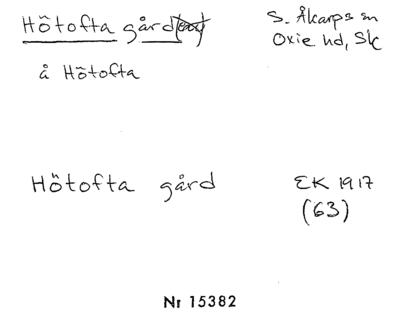 Hötofta gård
S. Åkarps sn
Oxie hd, Sk
å Hötofta
Hötofta gård
EK 1917
(63)
Nr 15382